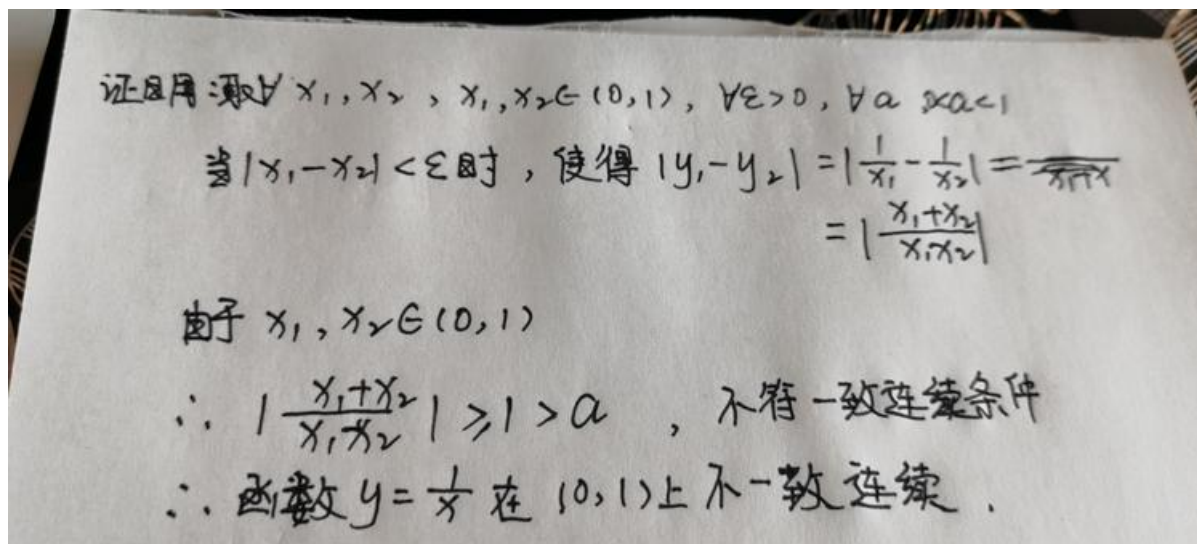 证明:取∀ x₁, x₂, x₁, x₂∈(0,1), ∀ε>0, ∀a 0<a<1
当|x₁-x₂|<ε时, 使得 |y₁-y₂| = |1/x₁ - 1/x₂| =
= |(x₁+x₂)/(x₁x₂)|
由于 x₁, x₂∈(0,1)
∴ |(x₁+x₂)/(x₁x₂)| ⩾ 1 > a , 不符一致连续条件
∴ 函数 y = 1/x 在 (0,1)上不一致连续.